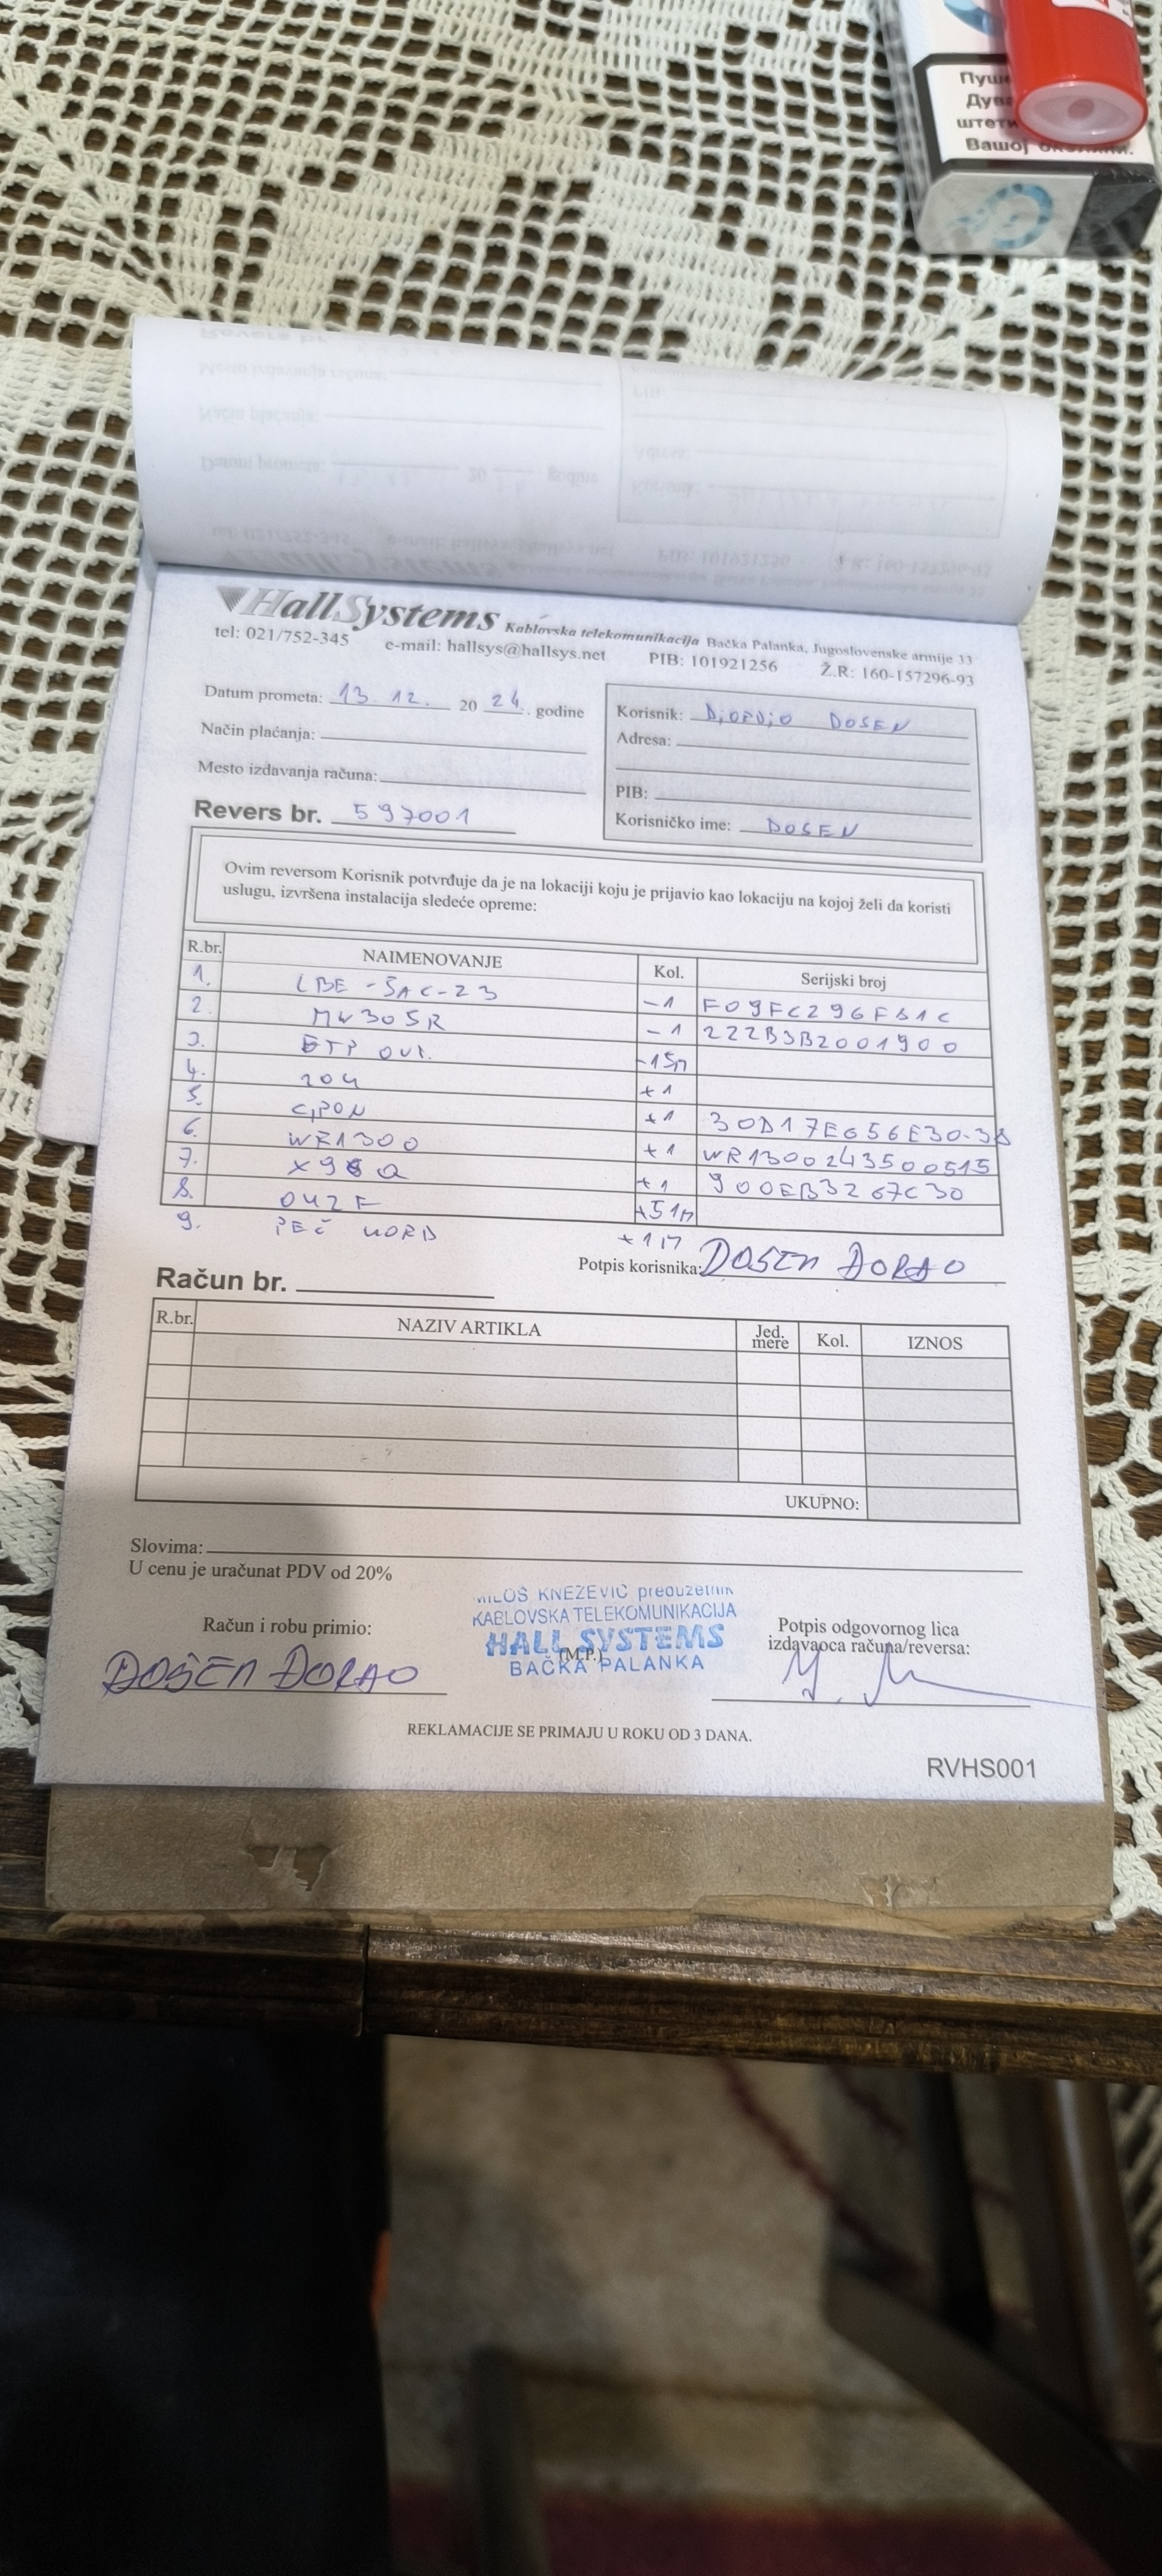 Пуш
Дува
штети
Вашој околини.
HallSystems Kablovska telekomunikacija Bačka Palanka, Jugoslovenske armije 33
tel: 021/752-345 e-mail: hallsys@hallsys.net PIB: 101921256 Ž.R: 160-157296-93
Datum prometa: 13. 12. 20 24. godine
Način plaćanja:
Mesto izdavanja računa:
Revers br. 597001
Korisnik: DJORDJO DOSEN
Adresa:
PIB:
Korisničko ime: DOSEN
Ovim reversom Korisnik potvrđuje da je na lokaciji koju je prijavio kao lokaciju na kojoj želi da koristi
uslugu, izvršena instalacija sledeće opreme:
R.br. NAIMENOVANJE Kol. Serijski broj
1. LBE-5AC-23 -1 F09FC296F81C
2. MW305R -1 222B3B2001900
3. FTP OUT. -15m
4. ZOK +1
5. GPON +1 30D17E656E30-38
6. WR1300 +1 WR1300243500515
7. X96Q +1 900EB3267C30
8. OK2F +51m
9. PEČ KORD +1m
Potpis korisnika: DOŠEN ĐORĐO
Račun br.
R.br. NAZIV ARTIKLA Jed. mere Kol. IZNOS
UKUPNO:
Slovima:
U cenu je uračunat PDV od 20%
Račun i robu primio:
DOŠEN ĐORĐO
MILOŠ KNEŽEVIĆ preduzetnik
KABLOVSKA TELEKOMUNIKACIJA
HALL SYSTEMS
(M.P.)
BAČKA PALANKA
Potpis odgovornog lica
izdavaoca računa/reversa:
REKLAMACIJE SE PRIMAJU U ROKU OD 3 DANA.
RVHS001